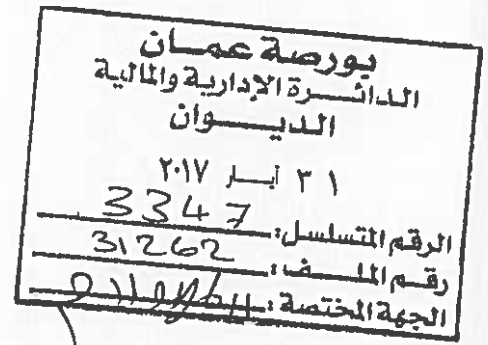 بورصة عمان
الدائرة الإدارية والمالية
الديوان
٣١ أيار ٢٠١٧
الرقم المتسلسل: 3347
رقم الملف: 31262
الجهة المختصة: